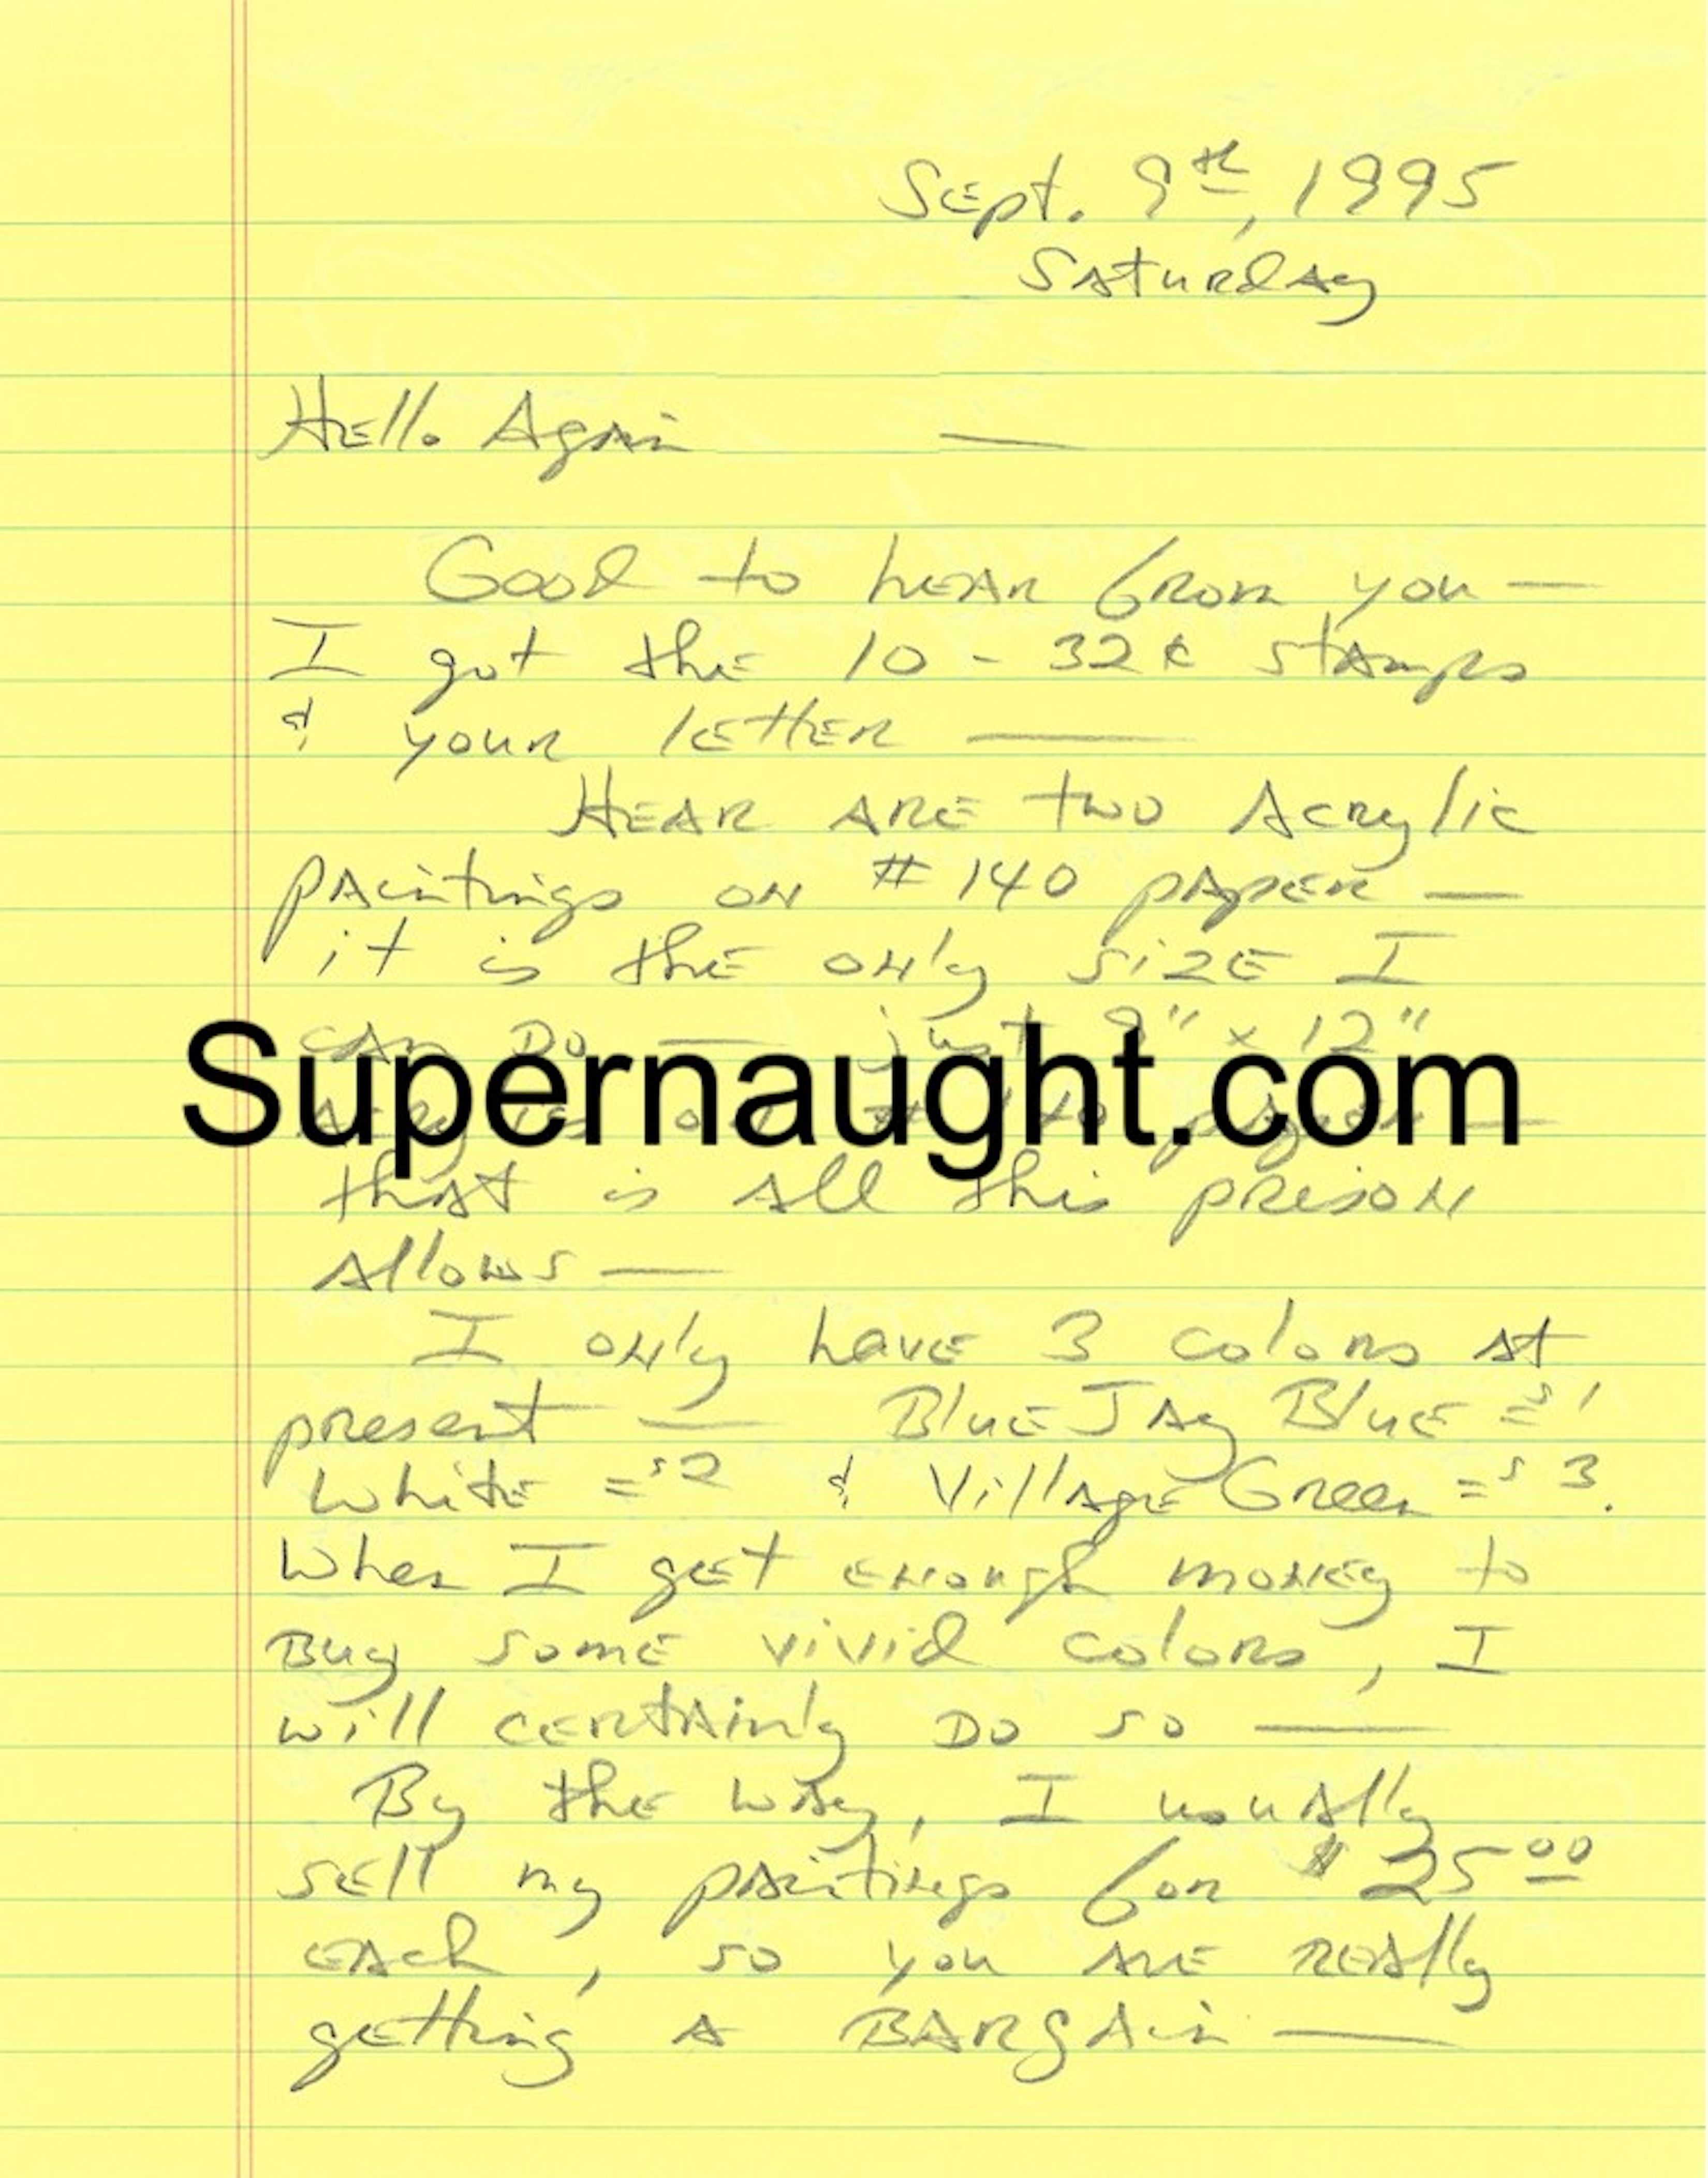 Sept. 9th, 1995
Saturday
Hello Again —
Good to hear from you —
I got the 10 - 32¢ stamps
& your letter —
Hear are two Acrylic
paintings on #140 paper —
it is the only size I
can Do — just 9" x 12"
Supernaught.com
on #140 paper —
that is all this prison
allows —
I only have 3 colors at
present — Blue Jay Blue = 1
White = 2 & Village Green = 3.
When I get enough money to
Buy some vivid colors, I
will certainly Do so —
By the way, I usually
sell my paintings for $25.00
each, so you are really
getting a Bargain —